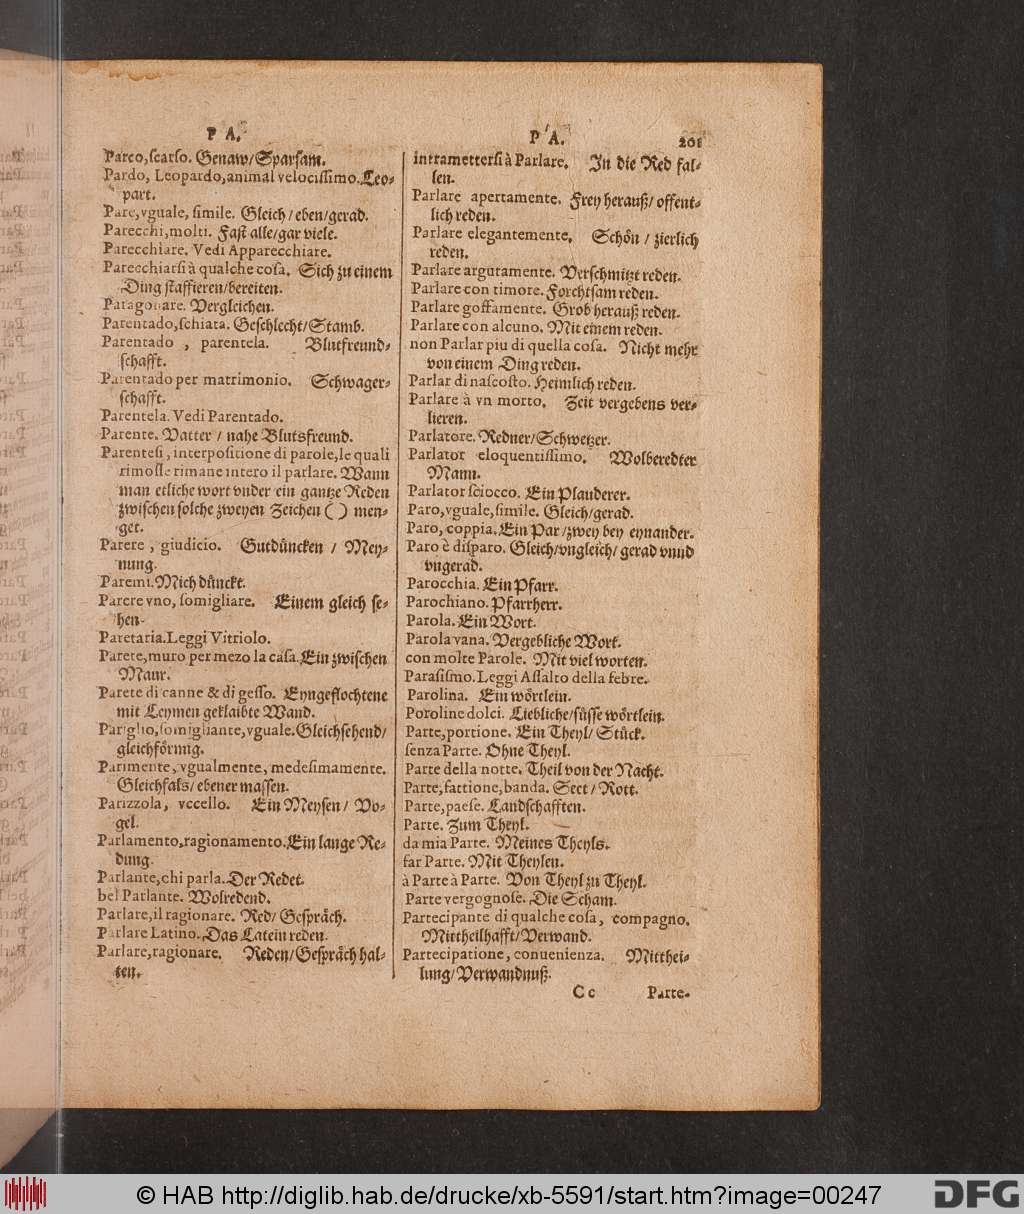 P A.
Parco, ſcarſo. Genaw/Sparſam.
Pardo, Leopardo, animal velociſſimo. Leo-
part.
Pare, vguale, ſimile. Gleich/eben/gerad.
Parecchi, molti. Faſt alle/gar viele.
Parecchiare. Vedi Apparecchiare.
Parecchiarſi à qualche coſa. Sich zu einem
Ding ſtaffieren/bereiten.
Paragonare. Vergleichen.
Parentado, ſchiata. Geſchlecht/Stamb.
Parentado, parentela. Blutfreund-
ſchafft.
Parentado per matrimonio. Schwager-
ſchafft.
Parentela. Vedi Parentado.
Parente. Vatter/nahe Blutsfreund.
Parenteſi, interpoſitione di parole, le quali
rimoſſe rimane intero il parlare. Wann
man etliche wort vnder ein gantze Reden
zwiſchen ſolche zweyen Zeichen ( ) men-
get.
Parere, giudicio. Gutdůncken/Mey-
nung.
Paremi. Mich důnckt.
Parere vno, ſomigliare. Einem gleich ſe-
hen.
Paretaria. Leggi Vitriolo.
Parete, muro per mezo la caſa. Ein zwiſchen
Maur.
Parete di canne & di geſſo. Eyngeflochtene
mit Leymen geklaibte Wand.
Pariglio, ſomigliante, vguale. Gleichſehend/
gleichförmig.
Parimente, vgualmente, medeſimamente.
Gleichfals/ebener maſſen.
Parizzola, vccello. Ein Meyſen/Vo-
gel.
Parlamento, ragionamento. Ein lange Re-
dung.
Parlante, chi parla. Der Redet.
bel Parlante. Wolredend.
Parlare, il ragionare. Red/Geſpräch.
Parlare Latino. Das Latein reden.
Parlare, ragionare. Reden/Geſpräch hal-
ten.
P A. 201
intrametterſi à Parlare. In die Red fal-
len.
Parlare apertamente. Frey herauß/offent-
lich reden.
Parlare elegantemente. Schön/zierlich
reden.
Parlare argutamente. Verſchmitzt reden.
Parlare con timore. Forchtſam reden.
Parlare goffamente. Grob herauß reden.
Parlare con alcuno. Mit einem reden.
non Parlar piu di quella coſa. Nicht mehr
von einem Ding reden.
Parlar di naſcoſto. Heimlich reden.
Parlare à vn morto. Zeit vergebens ver-
lieren.
Parlatore. Redner/Schwetzer.
Parlator eloquentiſſimo. Wolberedter
Mann.
Parlator ſciocco. Ein Plauderer.
Paro, vguale, ſimile. Gleich/gerad.
Paro, coppia. Ein Par/zwey bey eynander.
Paro è diſparo. Gleich/vngleich/gerad vnnd
vngerad.
Parocchia. Ein Pfarr.
Parochiano. Pfarrherr.
Parola. Ein Wort.
Parola vana. Vergebliche Wort.
con molte Parole. Mit viel worten.
Paraſiſmo. Leggi Aſſalto della febre.
Parolina. Ein wörtlein.
Poroline dolci. Liebliche/ſůſſe wörtlein.
Parte, portione. Ein Theyl/Stůck.
ſenza Parte. Ohne Theyl.
Parte della notte. Theil von der Nacht.
Parte, fattione, banda. Sect/Rott.
Parte, paeſe. Landſchafften.
Parte. Zum Theyl.
da mia Parte. Meines Theyls.
far Parte. Mit Theylen.
à Parte à Parte. Von Theyl zu Theyl.
Parte vergognoſe. Die Scham.
Partecipante di qualche coſa, compagno.
Mittheilhafft/Verwand.
Partecipatione, conuenienza. Mitthei-
lung/Verwandnuß.
Cc Parte-
© HAB http://diglib.hab.de/drucke/xb-5591/start.htm?image=00247
DFG